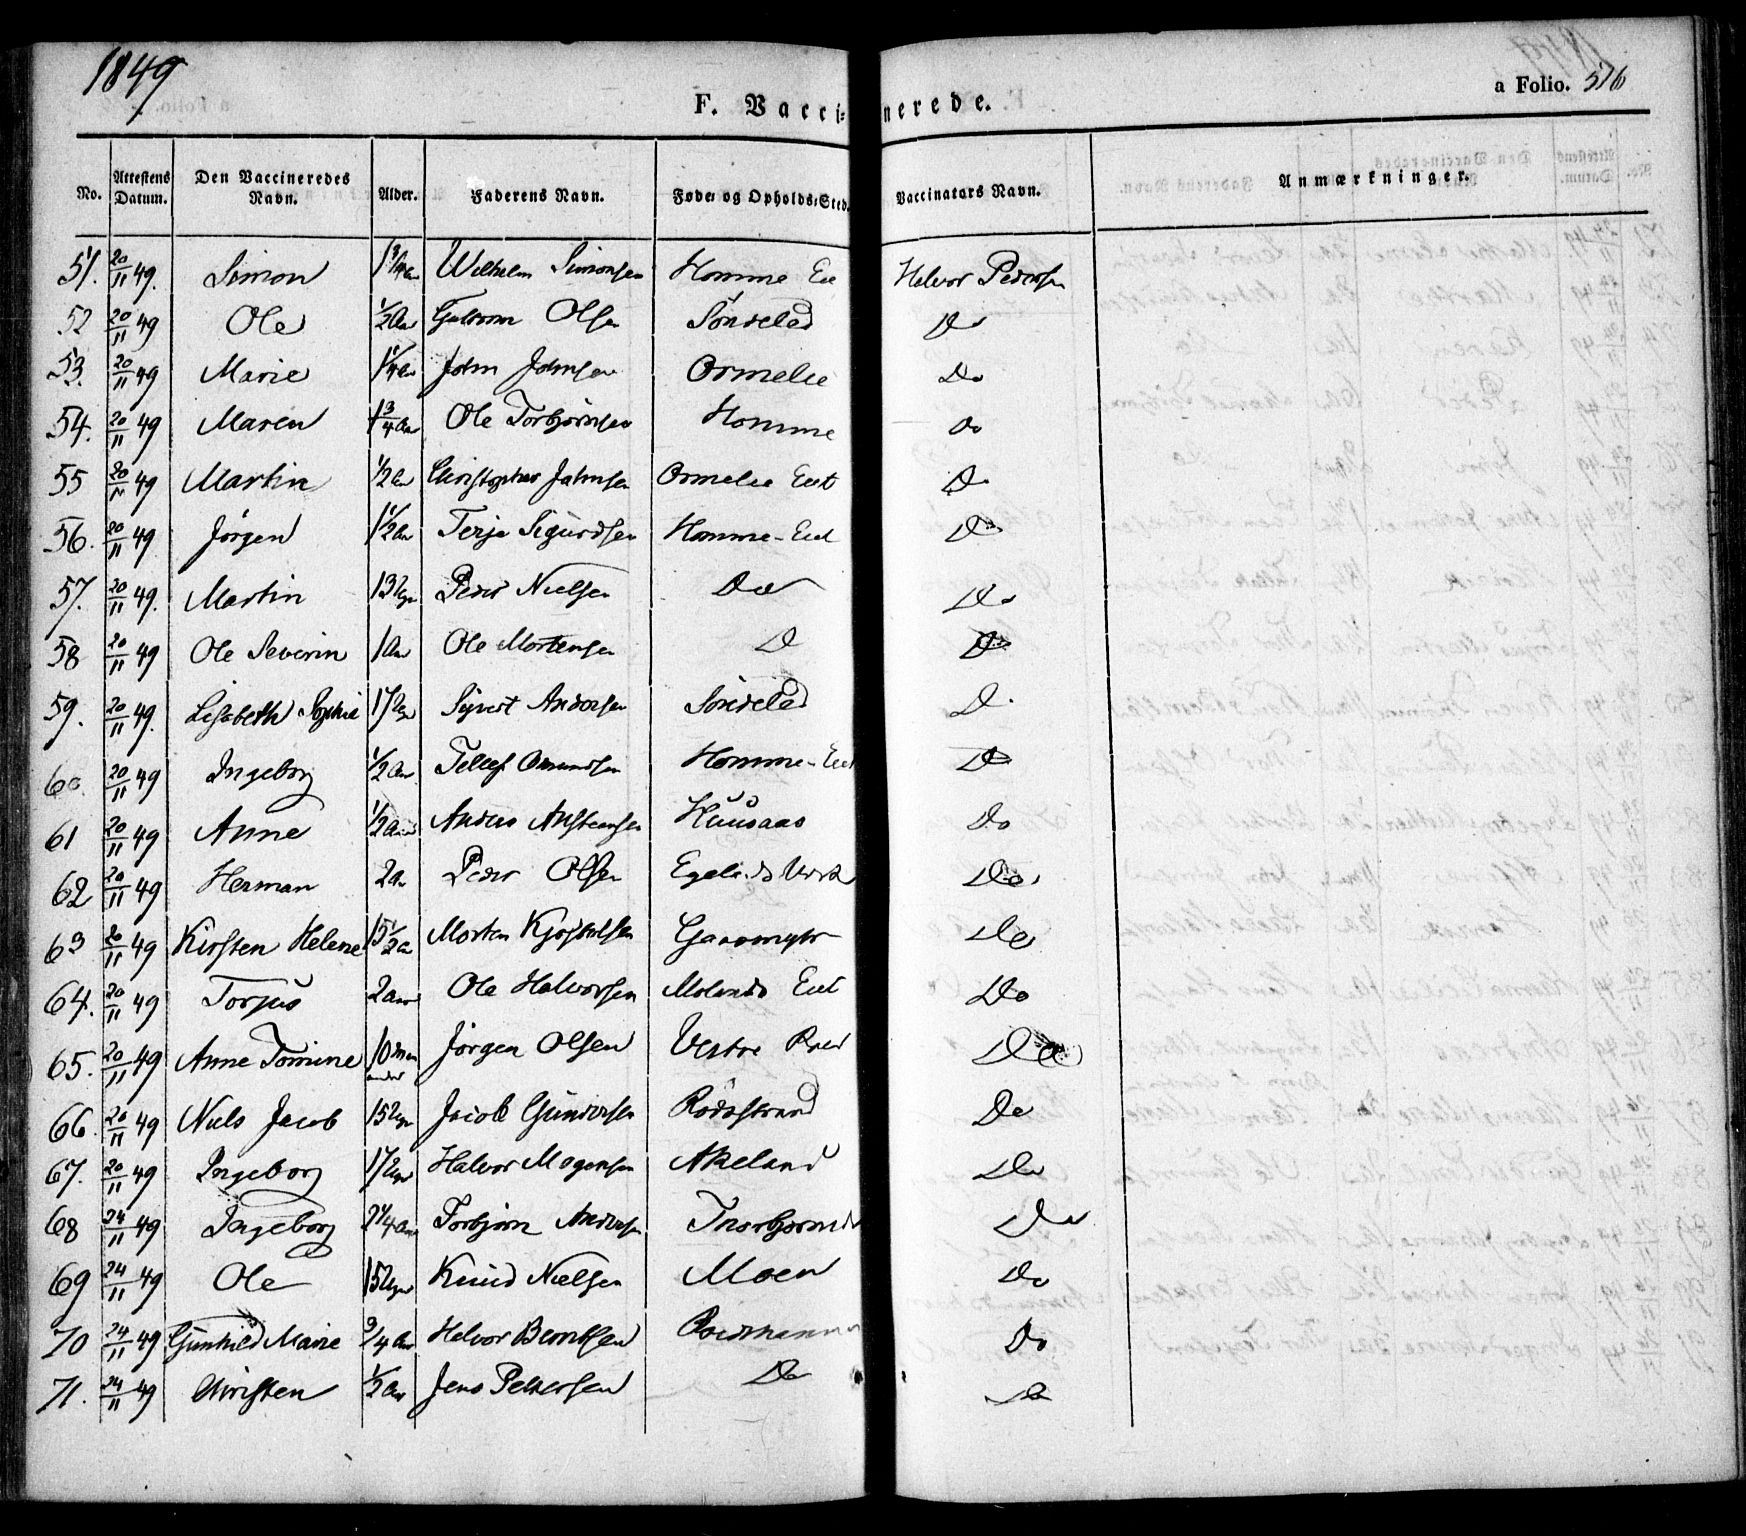 1849
a Folio. 516
F. Vaccinerede.
No. Attestens Datum. Den Vaccineredes Navn. Alder. Faderens Navn. Føde- og Opholds-Sted. Vaccinators Navn. Anmærkninger.
51. 20/11 49. Simon 1 3/4 Wilhelm Simonsen Homme Halvor Pedersen
52 20/11 49 Ole 1/2 Olsen Søndeled Do
53. 20/11 49 Marie 1 1/4 John Johnsen Ormelie Do
54. 20/11 49 Maren 1 3/4 Ole Torbjørnsen Homme Do
55 20/11 49 Martin 1/2 Christopher Johnsen Ormelie Eiet Do
56. 20/11 49 Jørgen 1 1/2 Terje Sigurdsen Homme-Eiet Do
57. 20/11 49. Martin 13 Uger Peder Nielsen Do Do
58 20/11 49 Ole Severin 1 Ole Mortensen D Do
59. 20/11 49. Lisabeth Sophie 17 Uger Sivert Andersen Søndeled D.
60. 20/11 49 Ingeborg 1/2 Tellef Omundsen Homme-Eiet Do
61 20/11 49 Anne 1/2 Anders Huusaas Do
62 20/11 49 Herman 2 Peder Olsen Egelands Verk Do
63 20/11 49 Kirsten Helene 15 1/2 Morten Gaasmyr Do
64. 20/11 49 Torjus 2 Ole Halvorsen Molands Eiet Do
65. 20/11 49 Anne Tomine 10 Jørgen Olsen Vestre Do
66. 20/11 49 Niels Jacob 15 Uger Jacob Gundersen Rødsstrand Do
67. 20/11 49 Ingeborg 17 Uger Halvor Mogensen Akeland Do
68 24/11 49 Ingeborg 2 1/4 Torbjørn Andersen Do
69 24/11 49 Ole 15 Uger Knud Nielsen Moen Do
70 24/11 49 Gunhild Marie 3/4 Halvor Berntsen Do
71. 24/11 49 Christen 1/2 Jens Pettersen Do Do